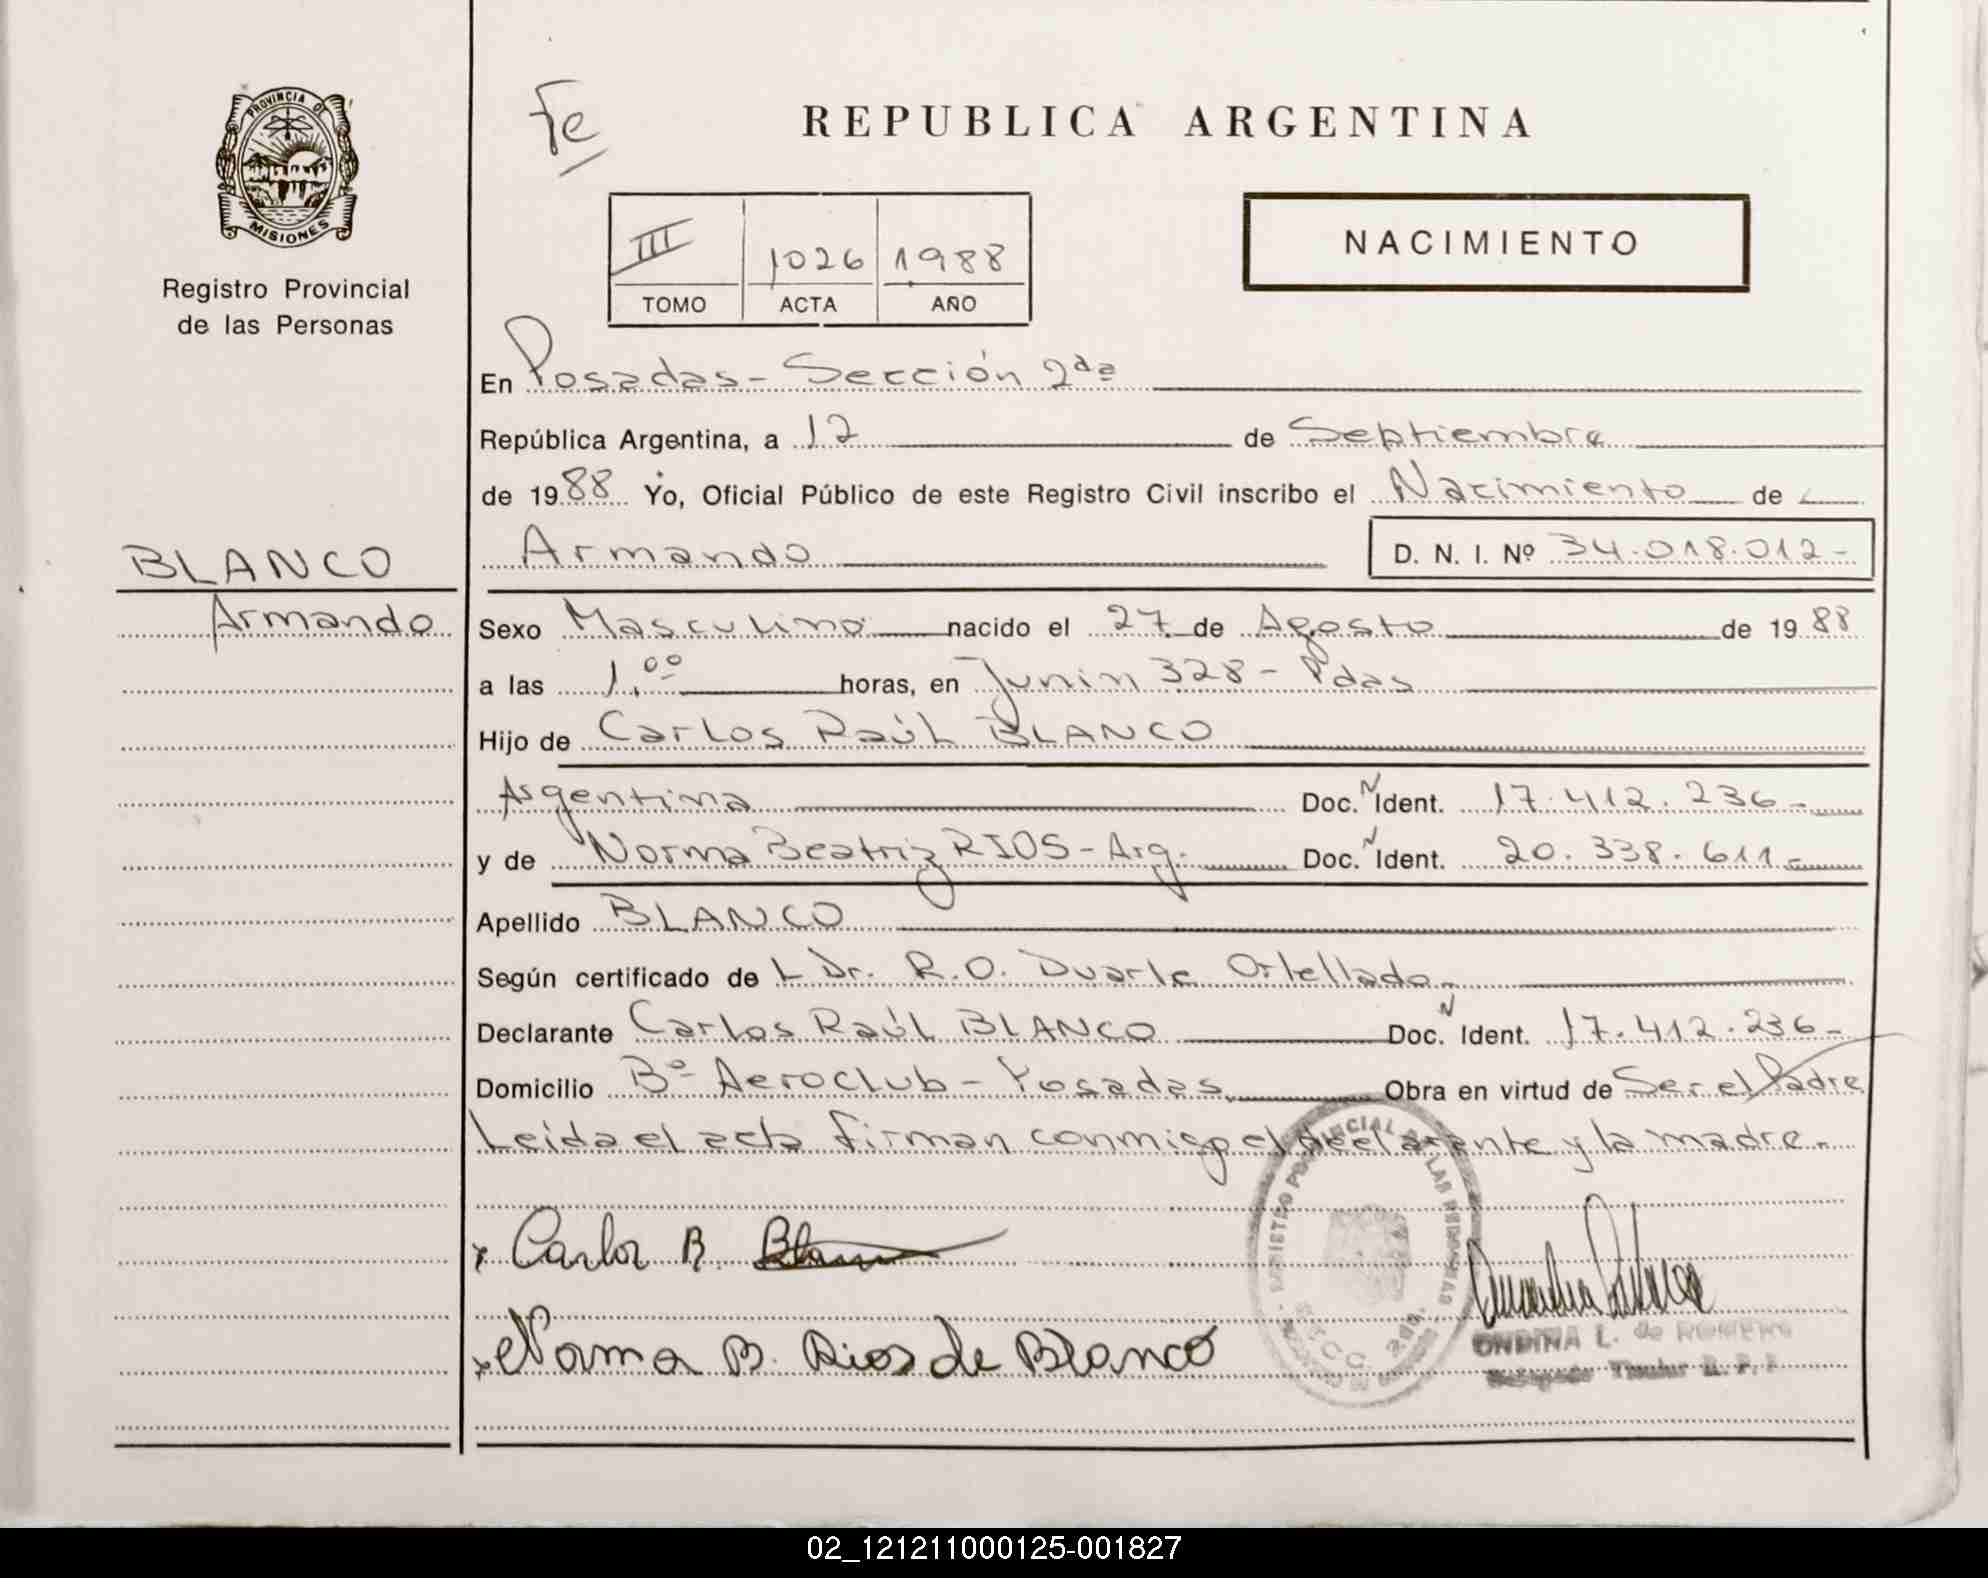 PROVINCIA DE
MISIONES
Registro Provincial
de las Personas
Fe
REPUBLICA ARGENTINA
III 1026 1988
TOMO ACTA AÑO
NACIMIENTO
En Posadas - Sección 2da
República Argentina, a 12 de Septiembre
de 1988 Yo, Oficial Público de este Registro Civil inscribo el Nacimiento de
Armando D. N. I. Nº 34.018.012-
BLANCO
Armando
Sexo Masculino nacido el 27 de Agosto de 1988
a las 1.00 horas, en Junin 328 - Pdas
Hijo de Carlos Raúl BLANCO
Argentina Doc. N Ident. 17.412.236-
y de Norma Beatriz RIOS - Arg. Doc. N Ident. 20.338.611-
Apellido BLANCO
Según certificado de L Dr. R.O. Duarte Ortellado
Declarante Carlos Raúl BLANCO Doc. N Ident. 17.412.236-
Domicilio Bº Aeroclub - Posadas Obra en virtud de Ser el Padre
Leida el acta firman conmigo el declarante y la madre.-
Carlos R. Blanco
Norma B. Rios de Blanco
REGISTRO PROVINCIAL DE LAS PERSONAS
SECC. 2da.
ONDINA L. de ROMERO
Delegado Titular R. P. P
02_121211000125-001827